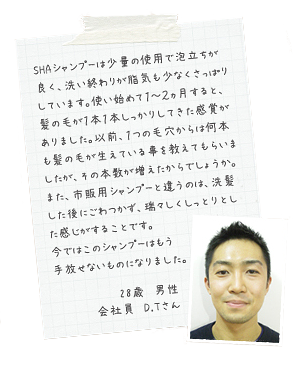 SHAシャンプーは少量の使用で泡立ちが
良く、洗い終わりが脂気も少なくさっぱり
しています。使い始めて1〜2ヵ月すると、
髪の毛が1本1本しっかりしてきた感覚が
ありました。以前、1つの毛穴からは何本
も髪の毛が生えている事を教えてもらいま
したが、その本数が増えたからでしょうか。
また、市販用シャンプーと違うのは、洗髪
した後にごわつかず、瑞々しくしっとりとし
た感じがすることです。
今ではこのシャンプーはもう
手放せないものになりました。
28歳　男性
会社員　D.Tさん